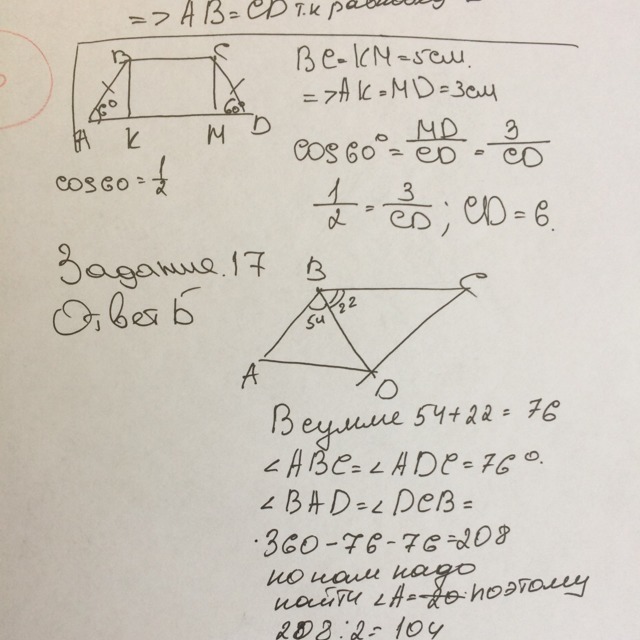 => AB = CD т.к
B C
60° 60°
A K M D
cos60 = 1/2
BC = KM = 5см.
=> AK = MD = 3см
cos60° = MD/CD = 3/CD
1/2 = 3/CD ; CD = 6.
Задание. 17
Ответ Б
B C
54 22
A D
В сумме 54+22 = 76
∠ABC = ∠ADC = 76°.
∠BAD = ∠DCB =
360 - 76 - 76 = 208
но нам надо
найти ∠A = 20 поэтому
208 : 2 = 104